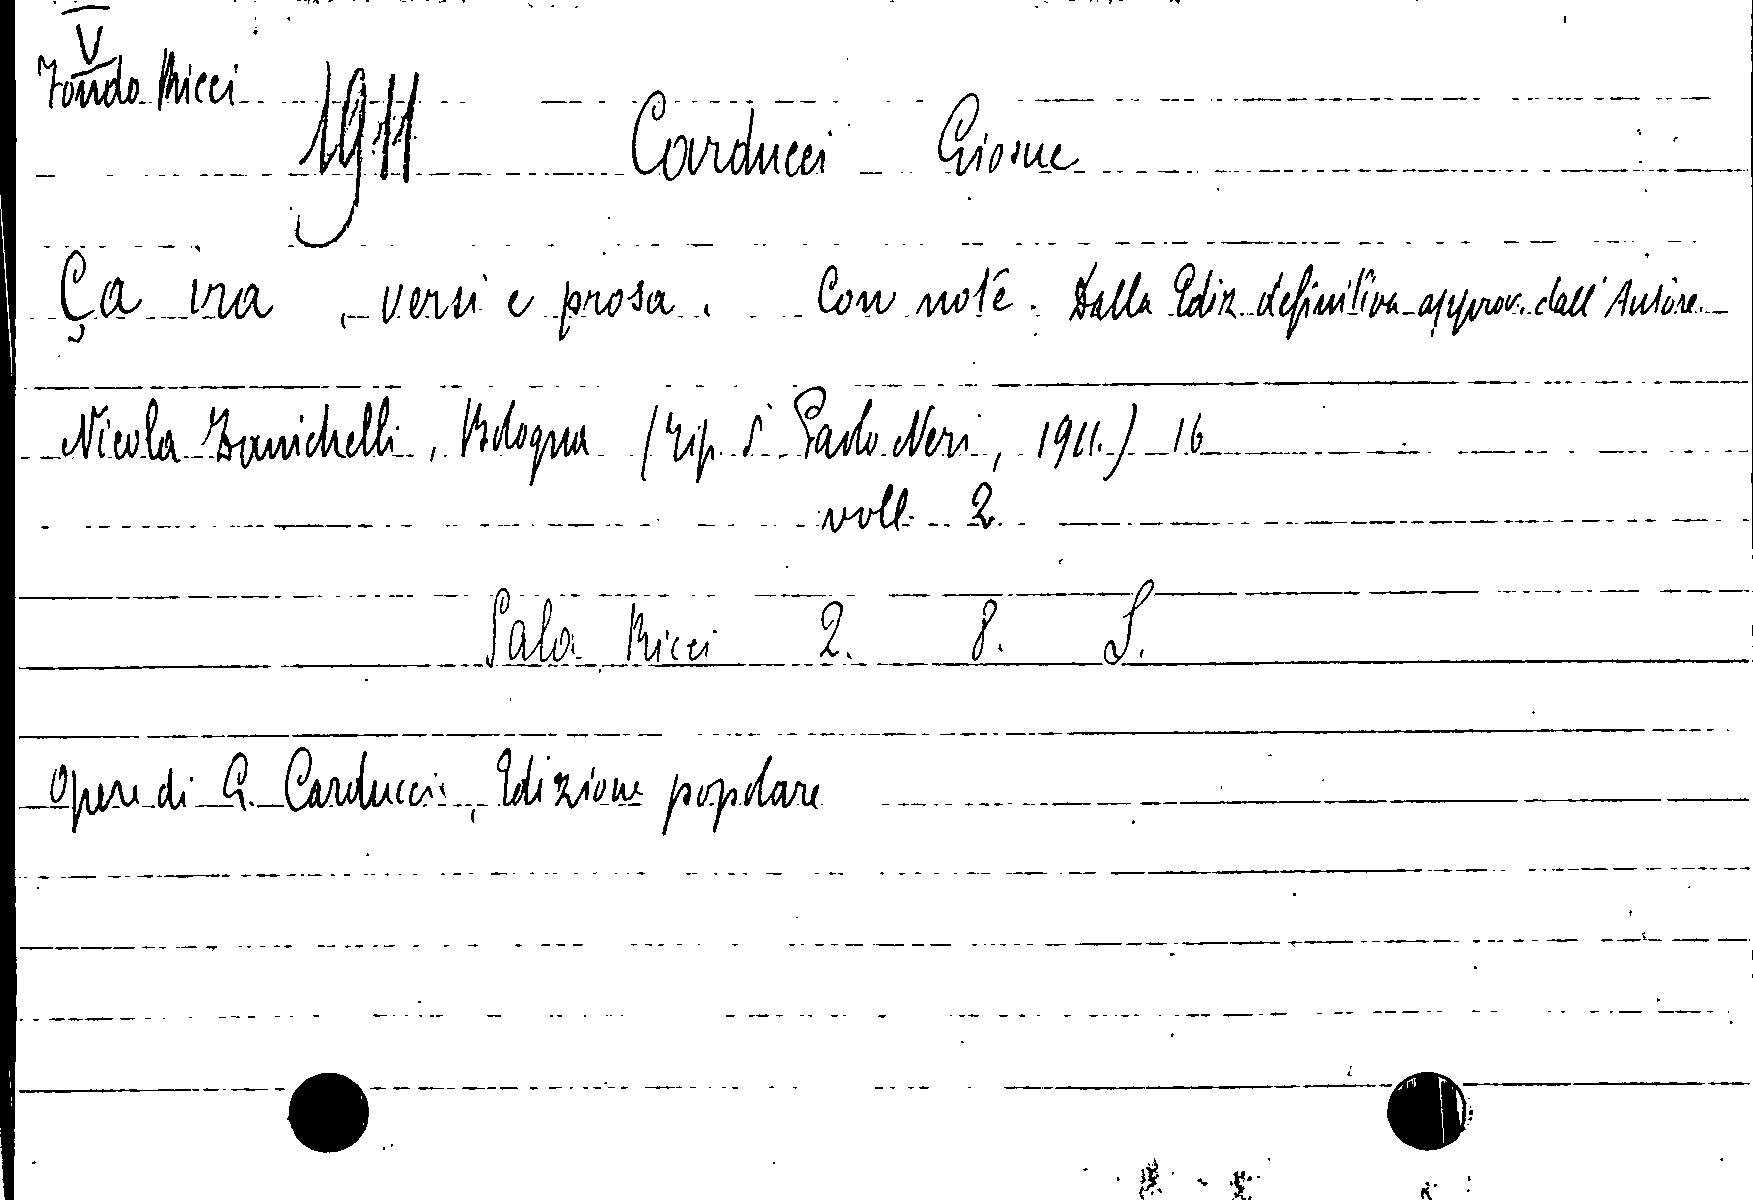 V
Fondo Ricci
1911 Carducci Giosue
Ça ira, versi e prosa. Con note. Dalla Ediz definitiva approv. dall'Autore
Nicola Zanichelli, Bologna (Tip. di Paolo Neri, 1911.) 16
voll. 2.
Sala Ricci 2. 8. S.
Opere di G. Carducci, Edizione popolare